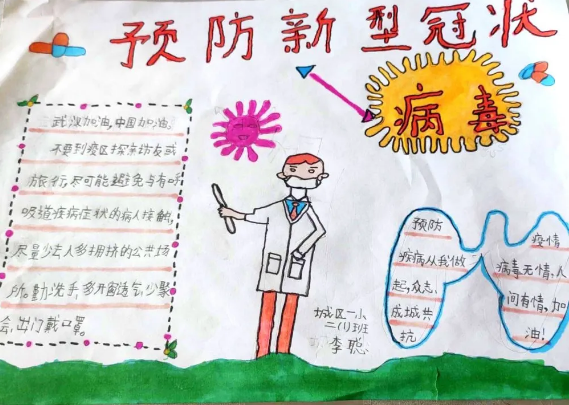 预防新型冠状
病毒
武汉加油,中国加油。
不要到疫区探亲访友或
旅行,尽可能避免与有呼
吸道疾病症状的病人接触,
尽量少去人多拥挤的公共场
所。勤洗手,多开窗透气,少聚
会,出门戴口罩。
预防
疾病,从我做
起,众志
成城共
抗
疫情
病毒无情,人
间有情,加
油!
城区一小
二(1)班
李聪